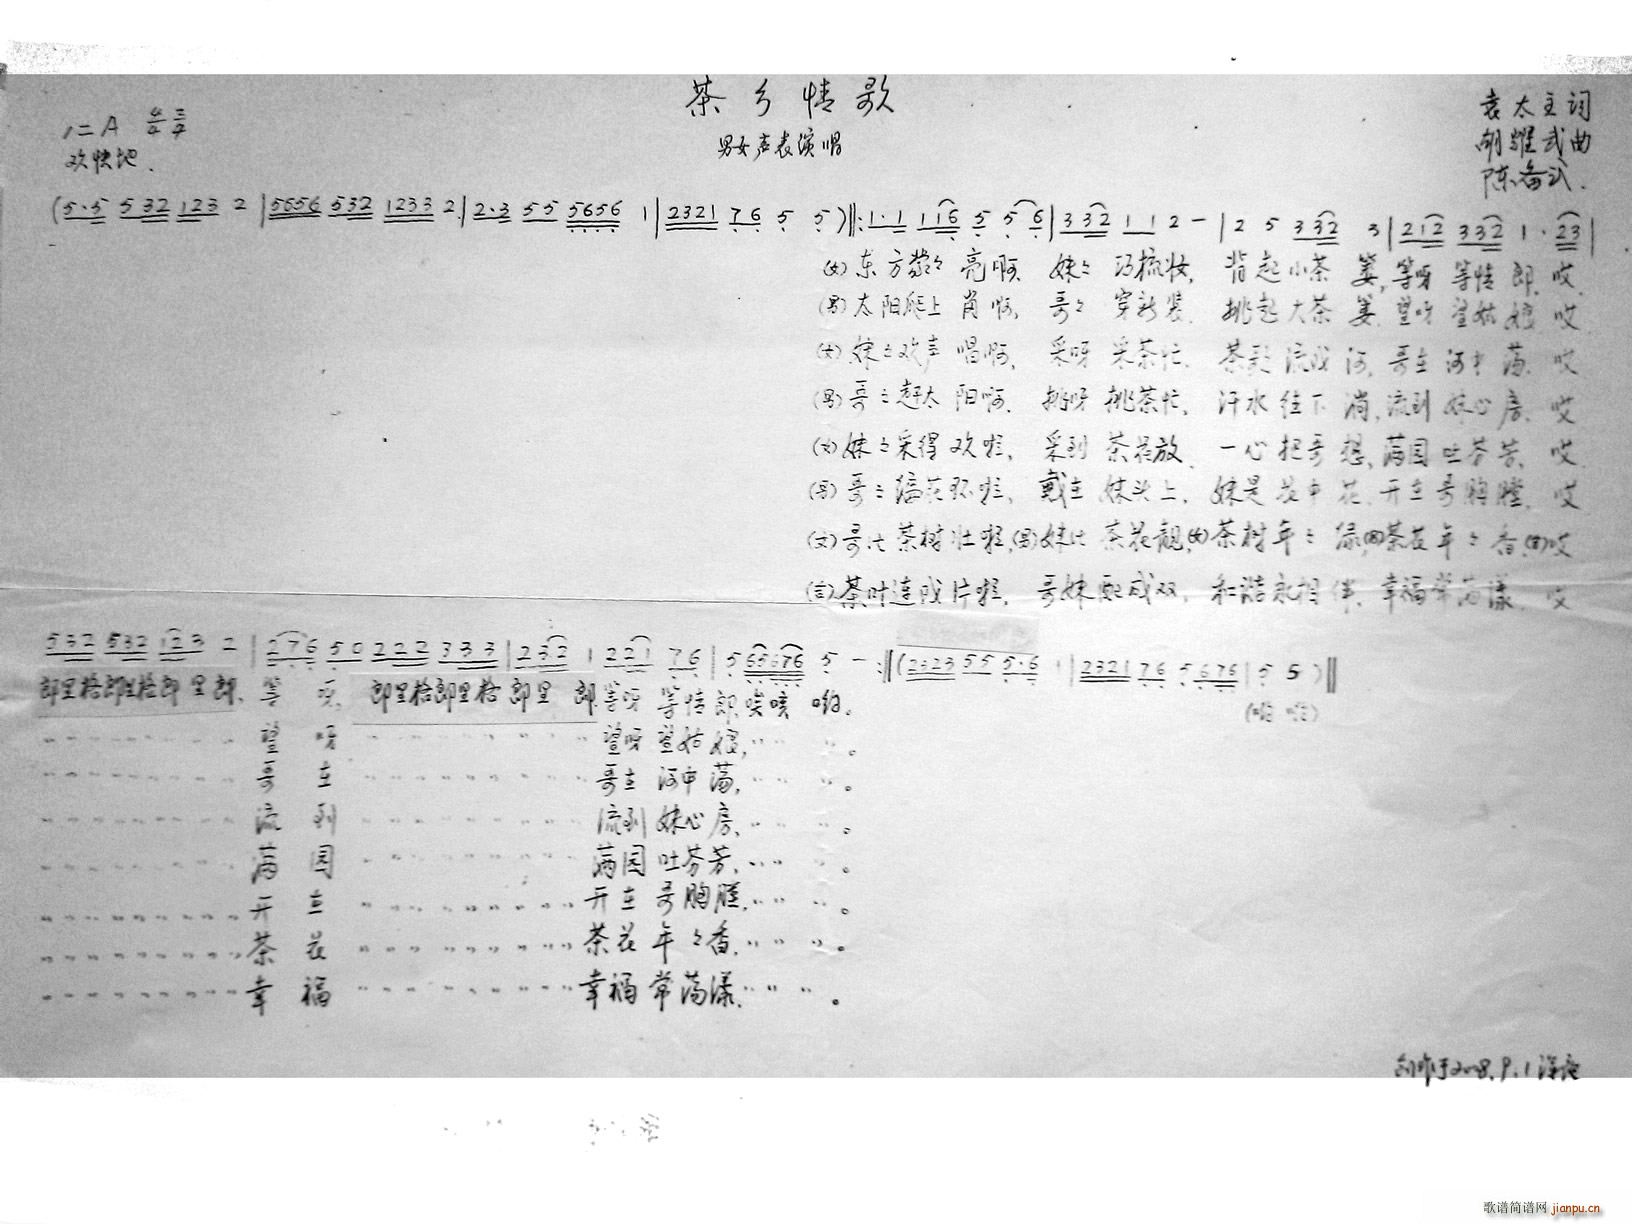 茶乡情歌
男女声表演唱
1=A 4/4 3/4
欢快地.
袁太主词
胡耀武曲
陈备武.
(5·5 532 123 2 |5656 532 1233 2.|2·3 55 5656 1 |2321 76 5 5)‖:1·1 116 5 5 6|332 11 2 - |2 5 332 3 |212 332 1·23|
(女)东方蒙々亮啊. 妹々巧梳妆, 背起小茶篓,等呀等情郎.哎.
(男)太阳爬上肖啊, 哥々穿新装. 挑起大茶篓.望呀望姑娘.哎
(女)妹々欢声唱啊, 采呀采茶忙. 茶歌流成河,哥在河中荡.哎
(男)哥々赶太阳啊. 挑呀挑茶忙, 汗水往下淌,流到妹心房.哎
(女)妹々采得欢啦, 采到茶花放. 一心把哥想,满园吐芬芳.哎
(男)哥々编花环啦, 戴在妹头上, 妹是花中花.开在哥胸膛,哎
(女)哥比茶树壮啦,(男)妹比茶花靓,(女)茶树年々绿,(男)茶花年々香,哎
(合)茶叶连成片啦, 哥妹配成双, 和谐永相伴.幸福常荡漾.哎
532 532 123 2 |276 50 222 333|232 1 221 76 |5 65676 5 - :‖(2323 55 5·6 1 |2321 76 5 676|5 5 )‖
郎里格郎里格郎里郎.等呀.郎里格郎里格郎里郎.等呀等情郎.唉咳哟。
(哟哟)
〃 〃 望呀 〃 〃 望呀望姑娘,〃 〃。
〃 〃 哥在 〃 〃 哥在河中荡,〃 〃。
〃 〃 流到 〃 〃 流到妹心房,〃 〃。
〃 〃 满园 〃 〃 满园吐芬芳,〃 〃。
〃 〃 开在 〃 〃 开在哥胸膛,〃 〃。
〃 〃 茶花 〃 〃 茶花年々香,〃 〃。
〃 〃 幸福 〃 〃 幸福常荡漾.〃 〃。
创作于2008.9.1深地
歌谱简谱网 jianpu.cn